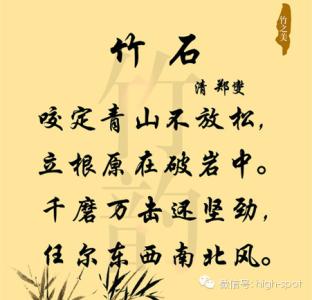 竹之美
竹石
清 郑燮
咬定青山不放松，
立根原在破岩中。
千磨万击还坚劲，
任尔东西南北风。
竹韵
微信号: high-spot